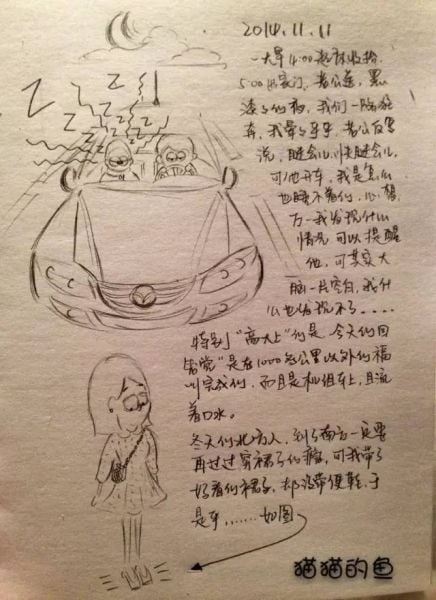 2014.11.11
一大早4:00起床收拾,
5:00出家门,老公送,黑
漆々的夜,我们一路狂
奔,我晕了乎乎,老公反复
说,睡会儿快睡会儿,
可他开车,我是怎么
也睡不着的,心想
万一我发现什么
情况可以提醒
他,可其实大
脑一片空白,我什
么也发现不了....
特别"高大上"的是,今天的回
笼觉"是在1000多公里以外的福
州完成的,而且是机组车上,且流
着口水。
冬天的北方人,到了南方一定要
再过过穿裙子的瘾,可我带了
好看的裙子,却没带便鞋,于
是乎........如图
猫猫的鱼
Z
Z
Z
Z
Z
Z
Z